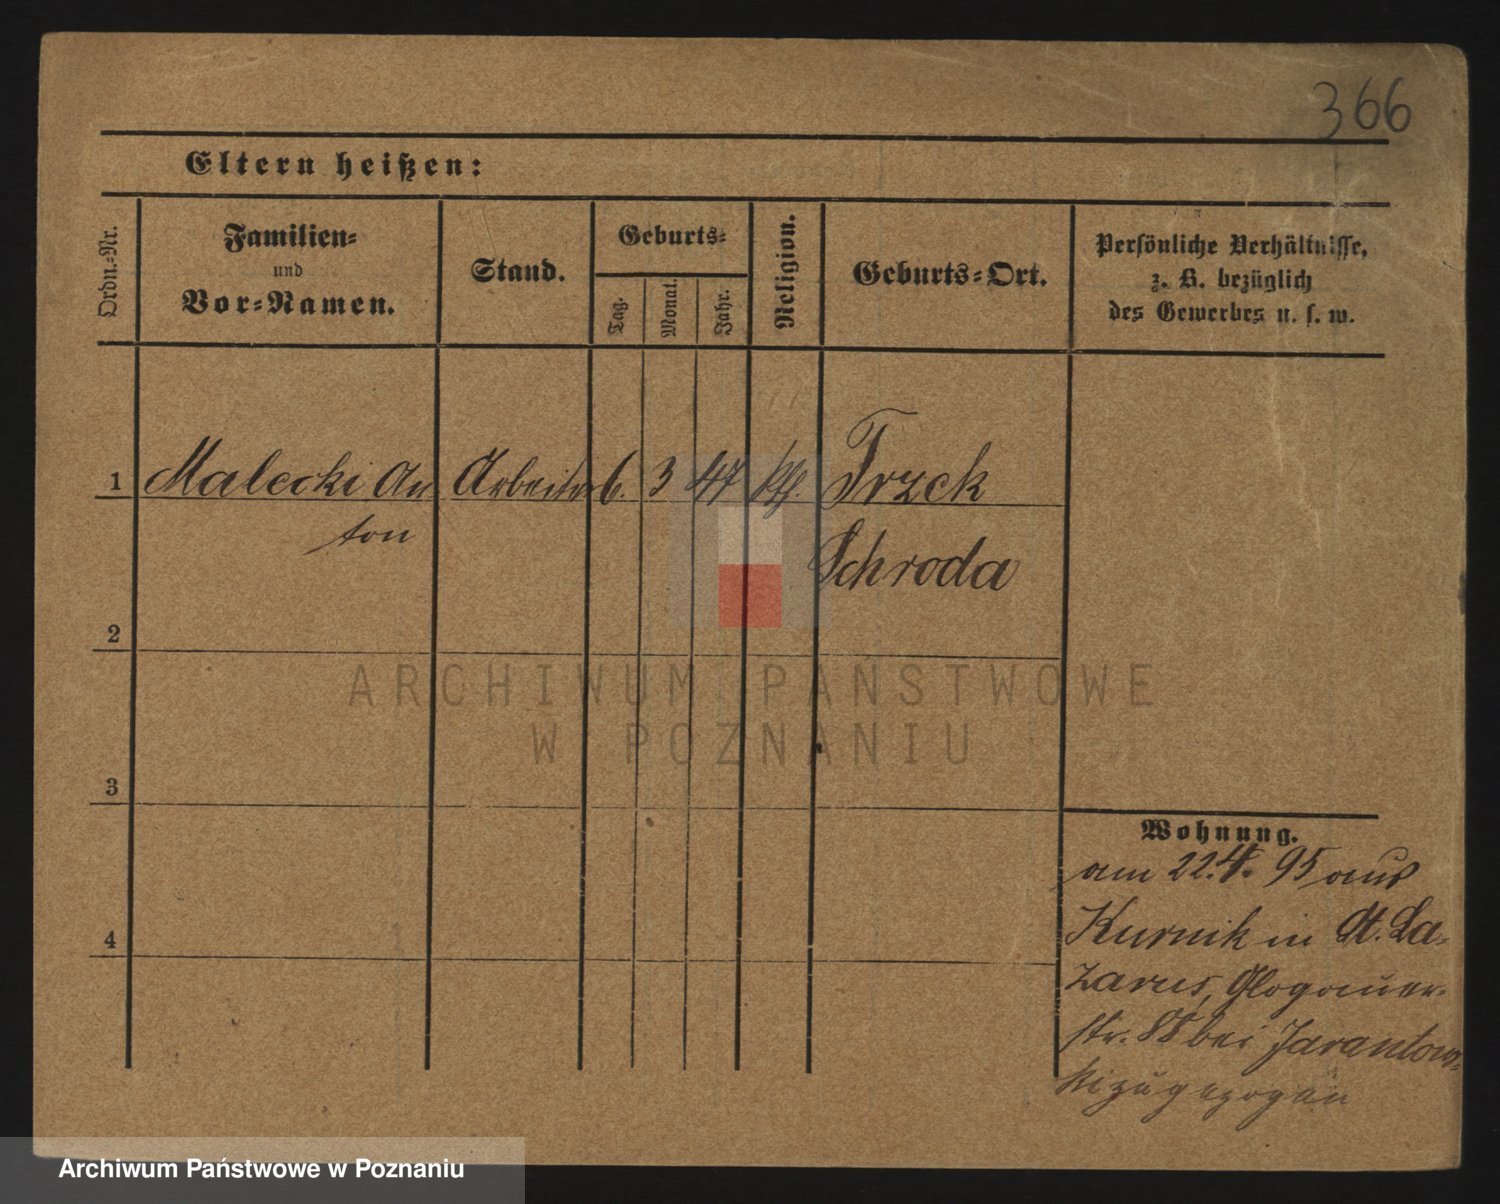 366
Eltern heißen:
Ordn.-Nr.
Familien-
und
Vor-Namen.
Stand.
Geburts-
Tag.
Monat.
Jahr.
Religion.
Geburts-Ort.
Persönliche Verhältnisse,
z. B. bezüglich
des Gewerbes u. s. w.
1 Malecki An Arbeiter 6. 3 47 kth. Trzek
ton
Schroda
2
3
4
Wohnung.
am 22.4. 95 aus
Kurnik in St. La-
zarus, Glogauer-
str. 88 bei Jarantows-
ki zugezogen
ARCHIWUM PAŃSTWOWE
W POZNANIU
Archiwum Państwowe w Poznaniu